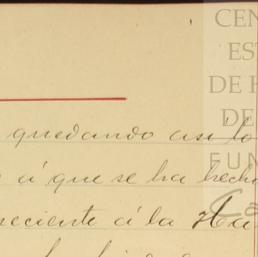 CEN
ES
DE H
DE
FUN
quedando asi lo
á que se ha hech
neciente á la Ha